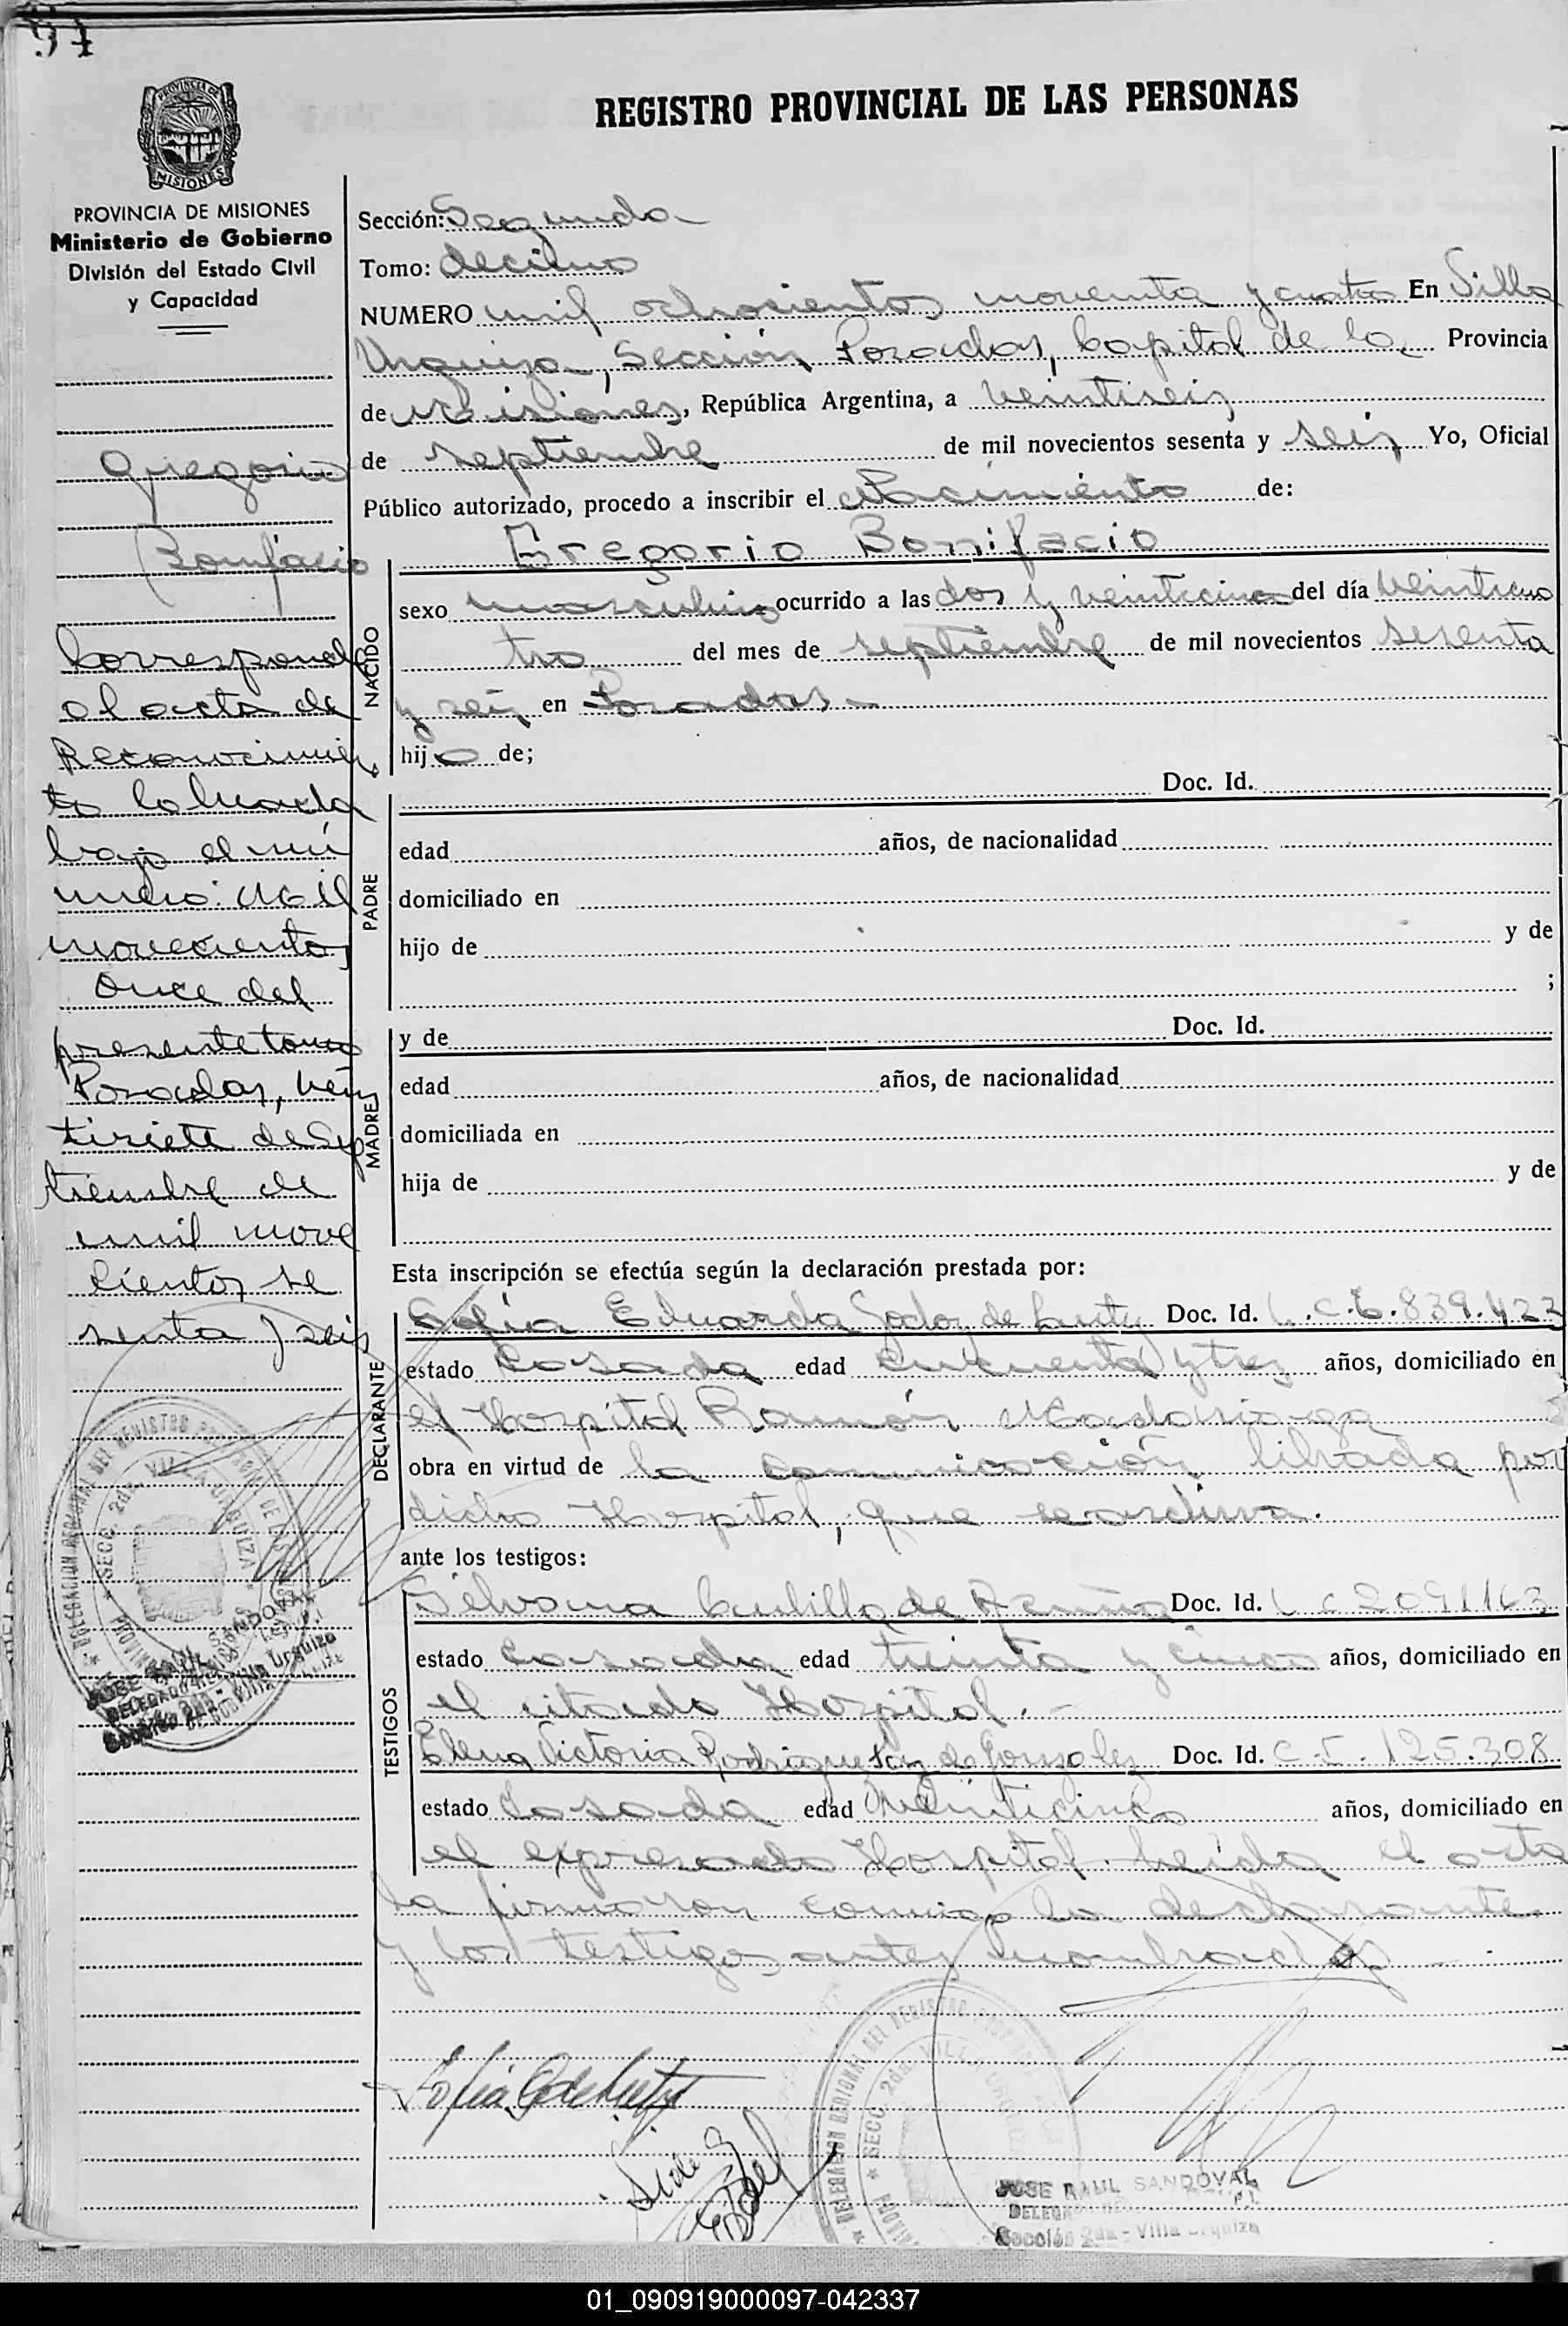 97
REGISTRO PROVINCIAL DE LAS PERSONAS
PROVINCIA DE MISIONES
Ministerio de Gobierno
División del Estado Civil
y Capacidad
Gregorio
Bonifacio
Corresponde
al acta de
Reconocimien
to labrada
bajo el nú
mero: Mil
novecientos
once del
presente tomo
Posadas, vein
tisiete de Sep
tiembre de
mil nove
cientos se
senta y seis
Sección: Segunda
Tomo: decimo
NUMERO mil ochocientos noventa y cuatro En Villa
Urquiza, Sección Posadas, Capital de la Provincia
de Misiones, República Argentina, a veintiseis
de septiembre de mil novecientos sesenta y seis Yo, Oficial
Público autorizado, procedo a inscribir el Nacimiento de:
Gregorio Bonifacio
NACIDO
sexo masculino ocurrido a las dos y veinticinco del día veinticua
tro del mes de septiembre de mil novecientos sesenta
y seis en Posadas.-
hijo de;
Doc. Id.
PADRE
edad años, de nacionalidad
domiciliado en
hijo de y de
;
y de Doc. Id.
MADRE
edad años, de nacionalidad
domiciliada en
hija de y de
Esta inscripción se efectúa según la declaración prestada por:
DECLARANTE
Sofia Eduarda Godoy de Doc. Id. L.C.6.839.423
estado Casada edad cincuenta y tres años, domiciliado en
el Hospital Ramón Madariaga
obra en virtud de la comunicación librada por
dicho Hospital, que se archiva.
ante los testigos:
TESTIGOS
Silvana de Doc. Id. L C 2091163
estado casada edad treinta y cinco años, domiciliado en
el citado Hospital.-
Elena Victoria Rodriguez de Gonzalez Doc. Id. C.I. 125.308
estado Casada edad Veinticinco años, domiciliado en
el expresado Hospital. Leida el acta
la firmaron conmigo la declarante
y los testigos antes nombrados
JOSE RAUL SANDOVAL
Sección 2da - Villa Urquiza
01_090919000097-042337